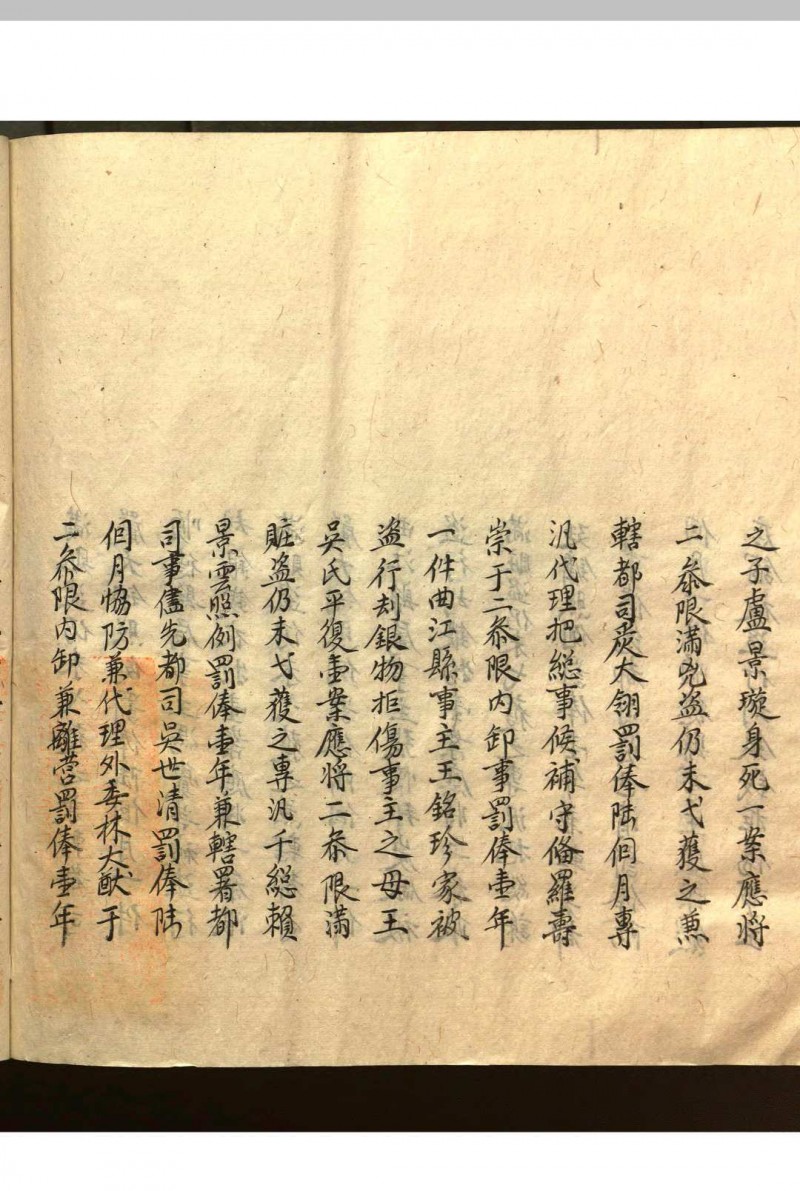 之子盧景璇身死一案應將
二叅限滿兇盜仍未弋獲之兼
轄都司炭大翎罰俸陸個月專
汛代理把総事候補守俻羅壽
崇于二叅限內卸事罰俸壹年
一件曲江縣事主王銘珍家被
盜行刦銀物拒傷事主之母王
吳氏平復壹案應將二叅限滿
賍盜仍未弋獲之專汛千総賴
景雲照例罰俸壹年兼轄署都
司事儘先都司吳世清罰俸陸
個月恊防兼代理外委林大猷于
二叅限內卸兼離营罰俸壹年